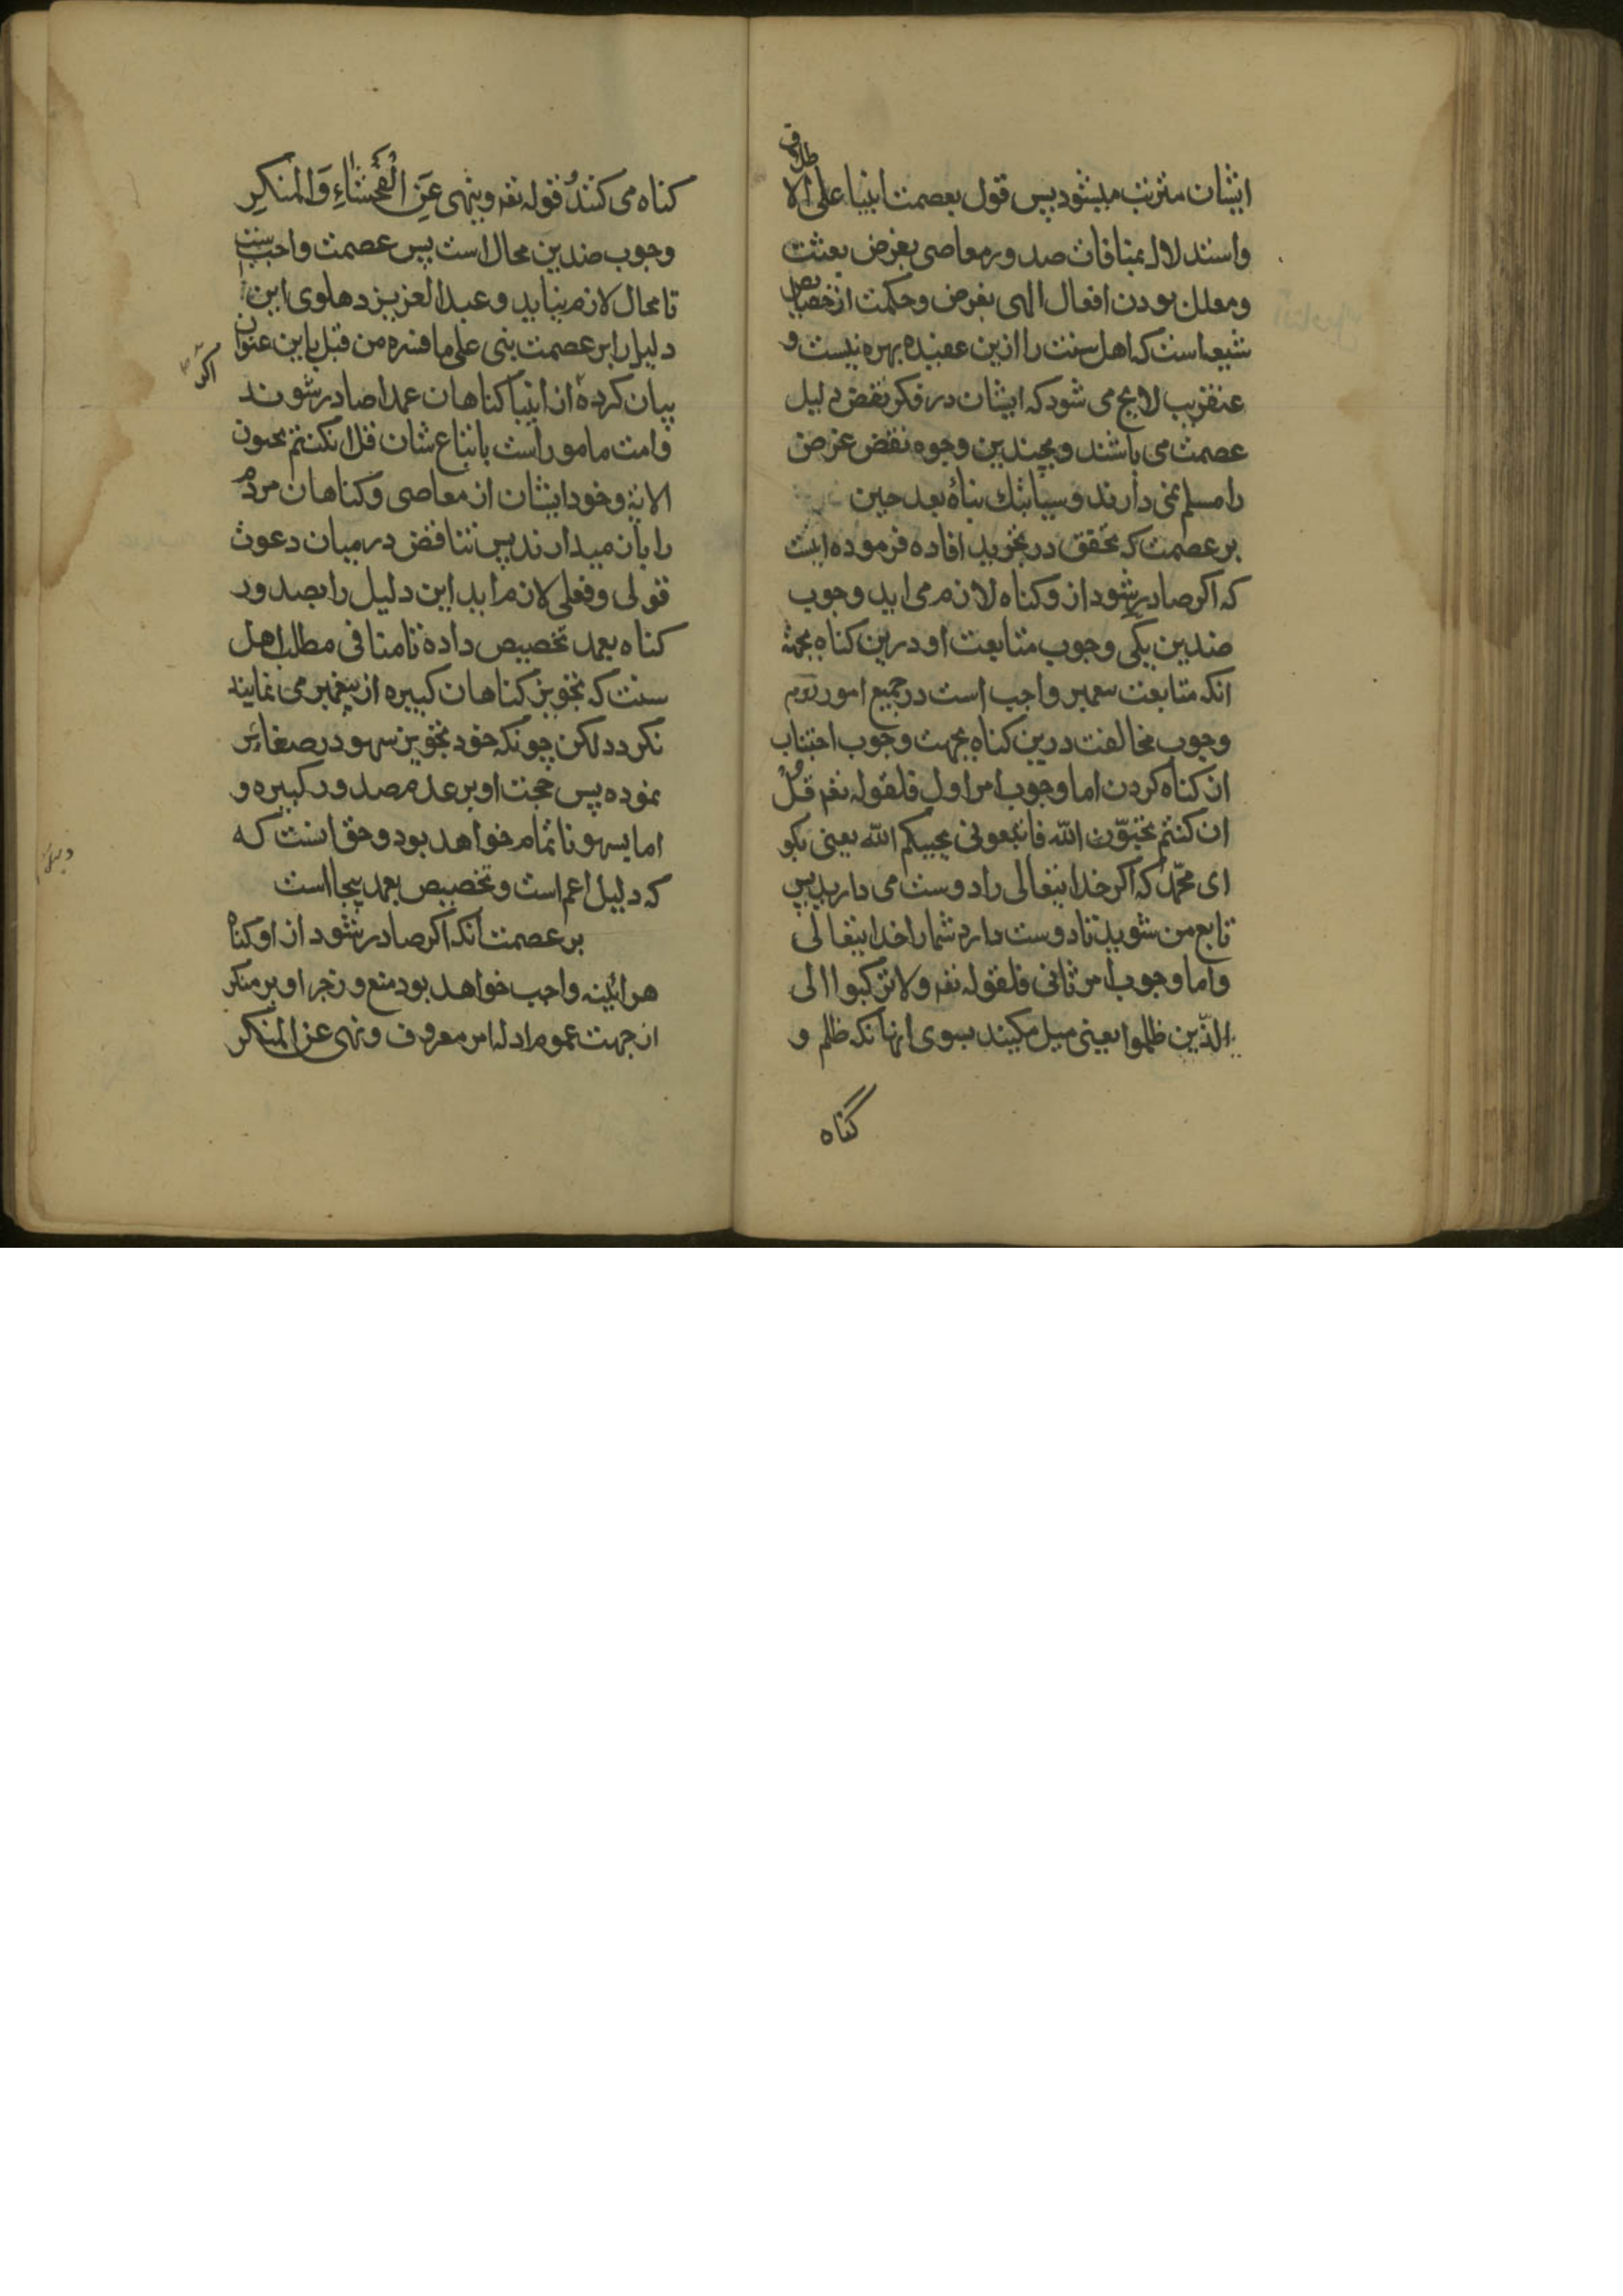 ایشان مترتب میشود پس قول بعصمت انبیا علی الاطلاق
واستدلال بمنافات صدور معاصی بغرض بعثت
ومعلل بودن افعال الهی بغرض وحکمت ازخصایص
شیعه است که اهل سنت را ازین عقیده بهره نیست و
عنقریب لایح می شود که ایشان در فکر نقض دلیل
عصمت می باشند و بچندین وجوه نقض غرض
را مسلم نمی دارند وسیأتیك نبأه بعد حین
بر عصمت که محقق در تجرید افاده فرموده اینست
که اکر صادر شود ازو کناه لازم می اید وجوب
ضدین یکی وجوب متابعت او درین کناه بجهة
انکه متابعت پیغمبر واجب است در جمیع امور دوم
وجوب مخالفت درین کناه بجهت وجوب اجتناب
از کناه کردن اما وجوب امر اول فلقوله تعم قُلْ
ان کنتم تحبّون الله فاتبعونی یحببکم الله یعنی بکو
ای محمّد که اکر خدایتعالی را دوست می دارید پس
تابع من شوید تا دوست دارد شما را خدایتعالی
واما وجوب امر ثانی فلقوله تعم ولا ترکنوا الی
الّذین ظلموا یعنی میل مکنید بسوی انهانکه ظلم و
گناه
کناه می کنند و قوله تعم وینهی عَنِ الْفَحْشَاءِ وَالْمُنْکَرِ
وجوب ضدین محال است پس عصمت واجب است
تا محال لازم نیاید و عبد العزیز دهلوی این
دلیل را بر عصمت بنی علی ما فسره من قبل باین عنوان
بیان کرده از انبیا کناهان عمدا صادر شوند
اکر
وامت مامور است باتباع شان قل ان کنتم تحبون
الایة وخود ایشان از معاصی و کناهان مردم
را باز میدارند پس تناقض در میان دعوت
قولی و فعلی لازم اید این دلیل را بصدور
کناه بعمد تخصیص داده تا منافی مطلب اهل
سنت که تجویز کناهان کبیره از پیغمبر می نمایند
نکردد لکن چونکه خود تجویز سهو در صغائر
نموده پس حجت او بر عدم صدور کبیره و
اما بسهو ناتمام خواهد بود و حق انست که
که دلیل اعم است و تخصیص بعمد بیجا است
بر عصمت انکه اکر صادر شود از او کناه
هر ائینه واجب خواهد بود منع و زجر او بر منکر
از جهت عموم ادله امر معروف و نهی عن المنکر